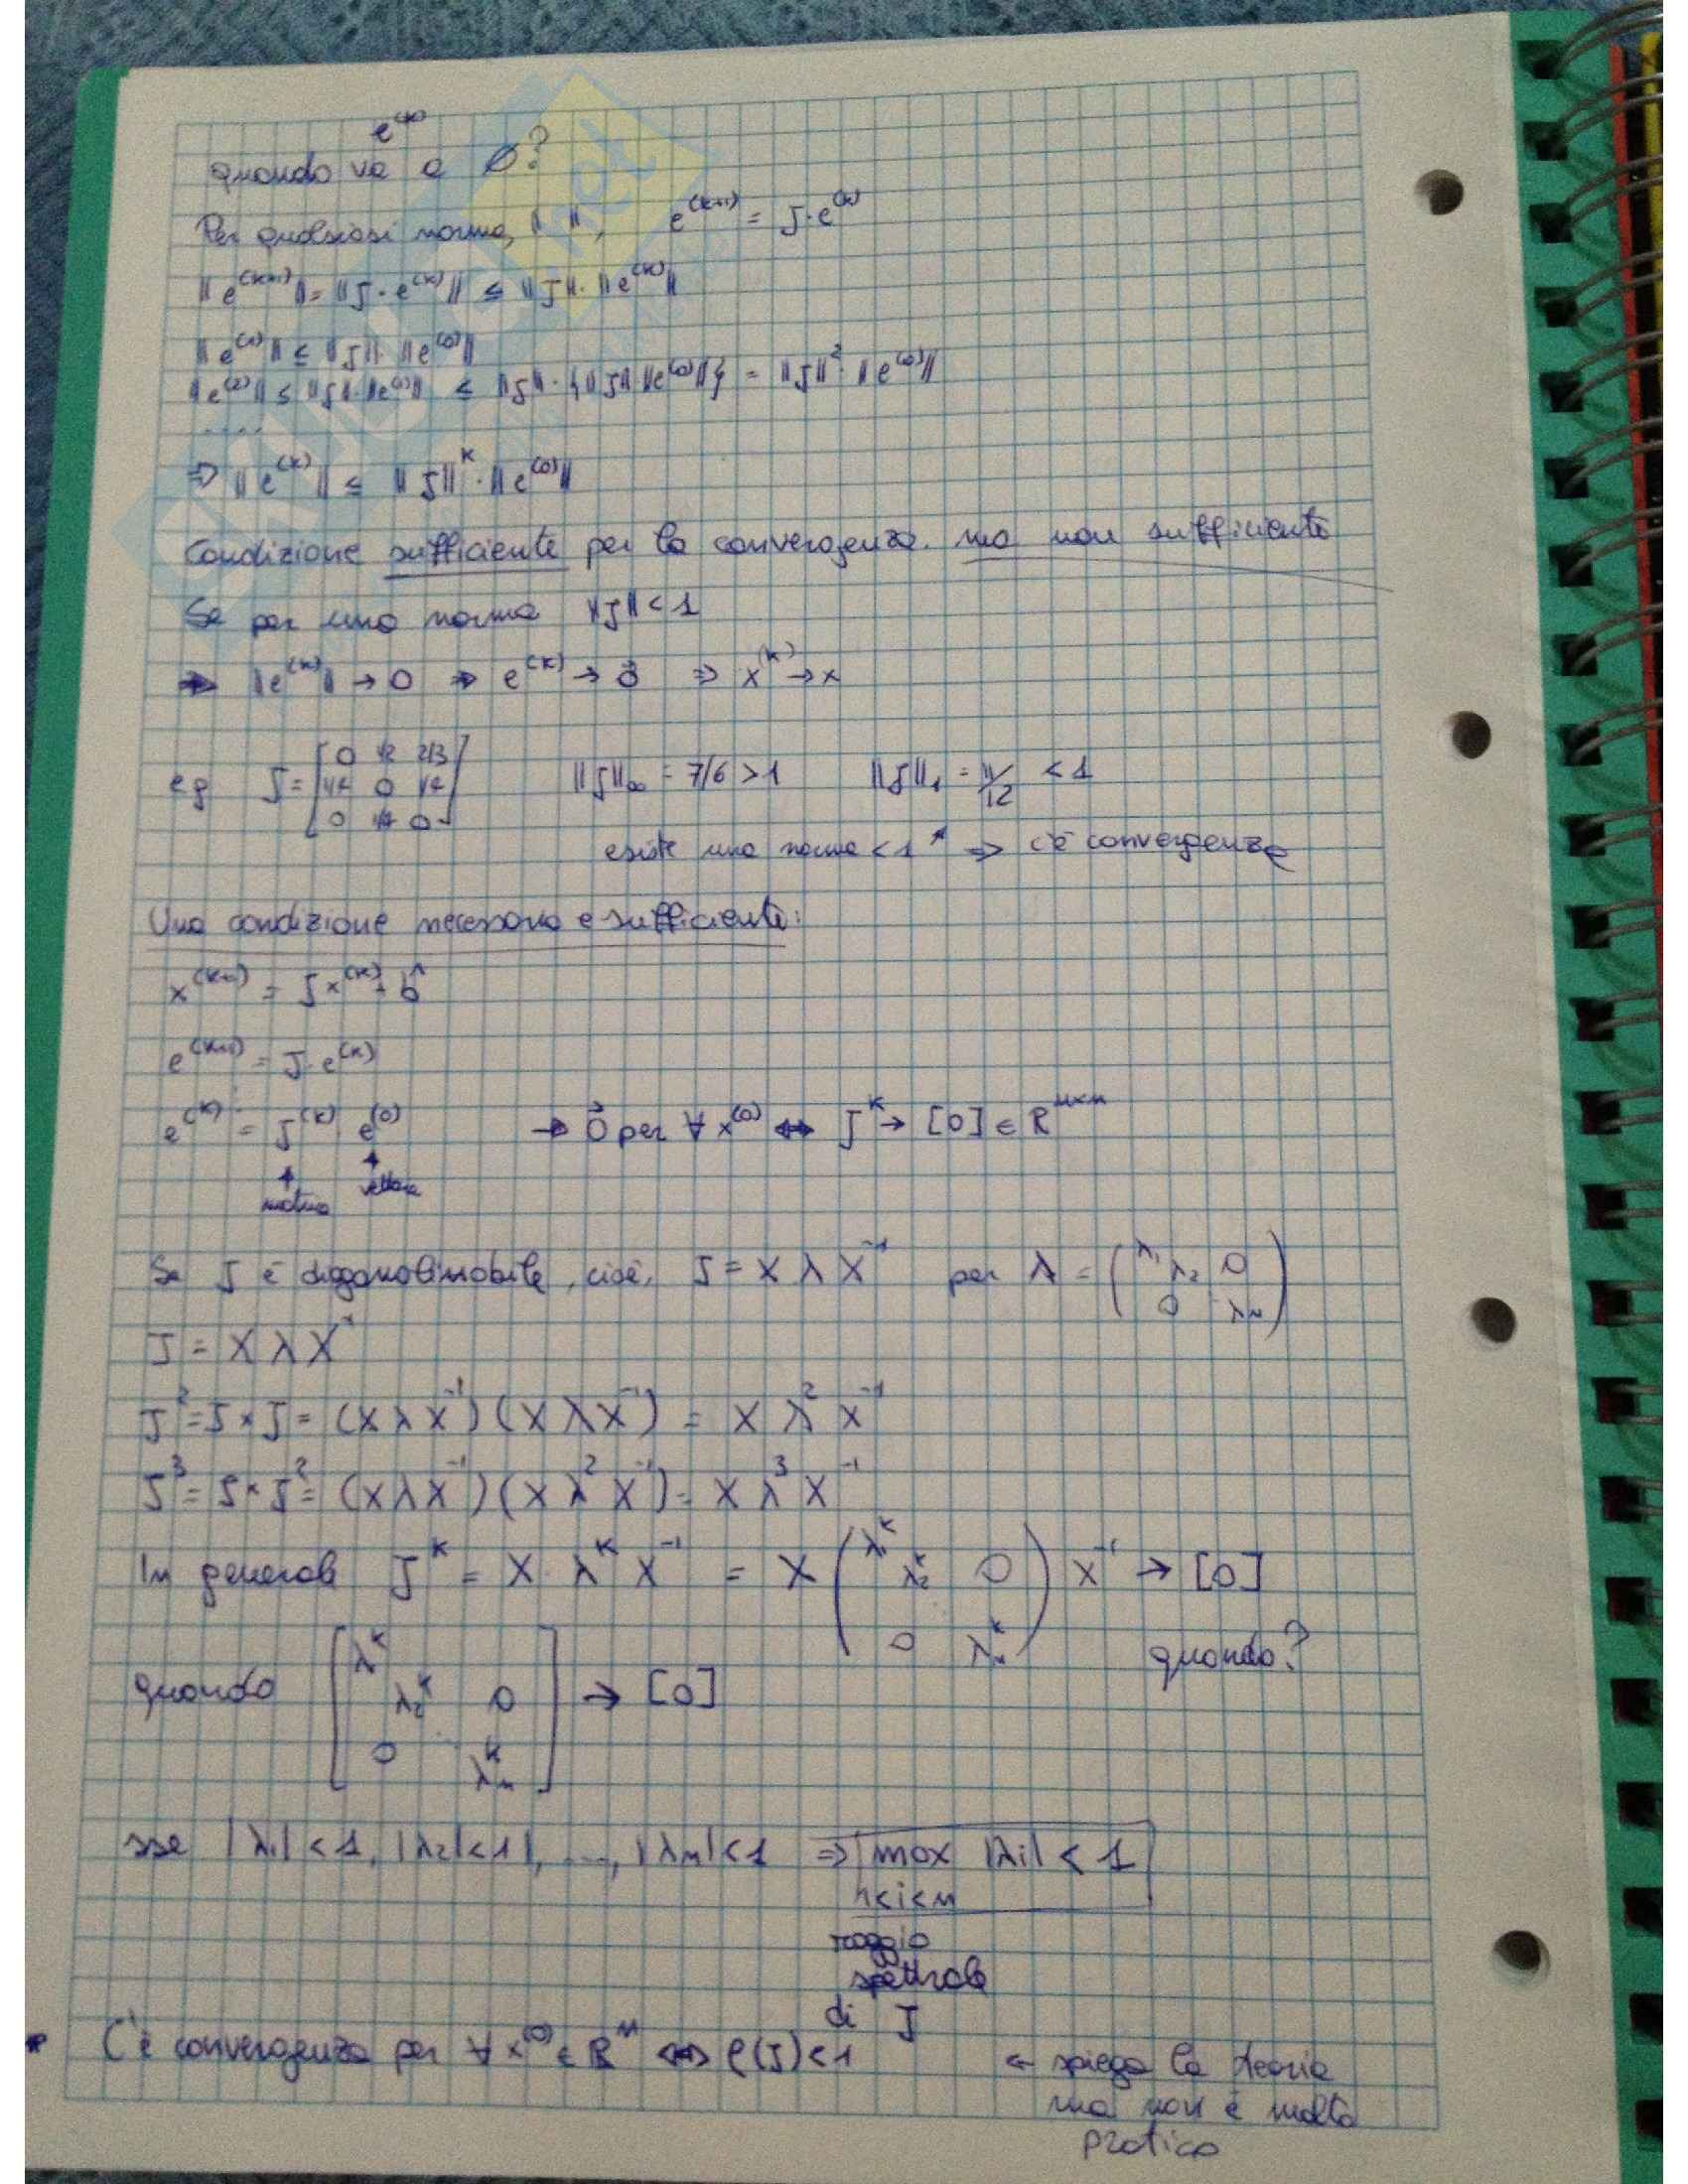 e^(k)
quando va a Ø?
Per qualsiasi norma, ‖ ‖, e^(k+1) = J·e^(k)
‖e^(k+1)‖ = ‖J·e^(k)‖ ≤ ‖J‖·‖e^(k)‖
‖e^(1)‖ ≤ ‖J‖·‖e^(0)‖
‖e^(2)‖ ≤ ‖J‖·‖e^(1)‖ ≤ ‖J‖·{‖J‖·‖e^(0)‖} = ‖J‖²·‖e^(0)‖
....
⇒ ‖e^(k)‖ ≤ ‖J‖^k·‖e^(0)‖
Condizione sufficiente per la convergenza. ma non sufficiente
Se per una norma ‖J‖ < 1
⇒ ‖e^(k)‖ → 0 ⇒ e^(k) → 0⃗ ⇒ x^(k) → x
eg J = [0 1/2 2/3; 1/4 0 1/4; 0 1/4 0] ‖J‖∞ = 7/6 > 1 ‖J‖₁ = 11/12 < 1
esiste una norma < 1 ⇒ c'è convergenza
Una condizione necessaria e sufficiente:
x^(k+1) = Jx^(k) + b̂
e^(k+1) = J·e^(k)
e^(k) = J^(k) e^(0) → 0⃗ per ∀ x^(0) ⇔ J^k → [0] ∈ R^n×n
matrice vettore
Se J è diagonalizzabile, cioè, J = X λ X⁻¹ per λ = (λ₁ λ₂ 0 0 λn)
J = X λ X⁻¹
J² = J × J = (X λ X⁻¹)(X λ X⁻¹) = X λ² X⁻¹
J³ = J × J² = (X λ X⁻¹)(X λ² X⁻¹) = X λ³ X⁻¹
In generale J^k = X · λ^k X⁻¹ = X (λ₁^k λ₂^k 0 0 λn^k) X⁻¹ → [0]
quando?
quando [λ^k λ₂^k 0 0 λn^k] → [0]
sse |λ₁| < 1, |λ₂| < 1, ..., |λn| < 1 ⇒ max |λi| < 1
1<i<n
raggio
spettrale
di J
* C'è convergenza per ∀ x^(0) ∈ R^n ⇔ ρ(J) < 1 ← spiega la teoria
ma non è molto
pratico